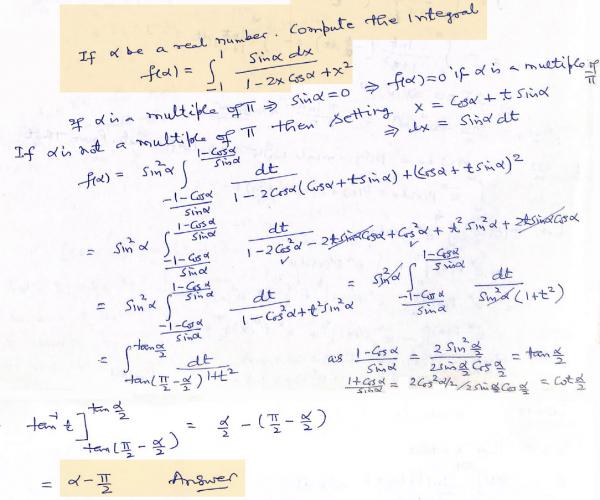 If α be a real number. Compute the integral
f(α) = ∫_{-1}^{1} Sinα dx / (1 - 2x Cosα + x²)
If α is a multiple of π ⇒ Sinα = 0 ⇒ f(α) = 0 if α is a multiple of π
If α is not a multiple of π then setting x = Cosα + t Sinα
⇒ dx = Sinα dt
f(α) = Sin²α ∫_{(-1-Cosα)/Sinα}^{(1-Cosα)/Sinα} dt / (1 - 2Cosα(Cosα + t Sinα) + (Cosα + t Sinα)²)
= Sin²α ∫_{(-1-Cosα)/Sinα}^{(1-Cosα)/Sinα} dt / (1 - 2Cos²α - 2t SinαCosα + Cos²α + t² Sin²α + 2t SinαCosα)
= Sin²α ∫_{(-1-Cosα)/Sinα}^{(1-Cosα)/Sinα} dt / (1 - Cos²α + t² Sin²α) = Sin²α ∫_{(-1-Cosα)/Sinα}^{(1-Cosα)/Sinα} dt / (Sin²α (1+t²))
= ∫_{tan(π/2 - α/2)}^{tan α/2} dt / (1+t²) as (1-Cosα)/Sinα = 2Sin² α/2 / (2Sin α/2 Cos α/2) = tan α/2
(1+Cosα)/Sinα = 2Cos² α/2 / 2Sin α/2 Cos α/2 = Cot α/2
tan⁻¹ t]_{tan(π/2 - α/2)}^{tan α/2} = α/2 - (π/2 - α/2)
= α - π/2 Answer